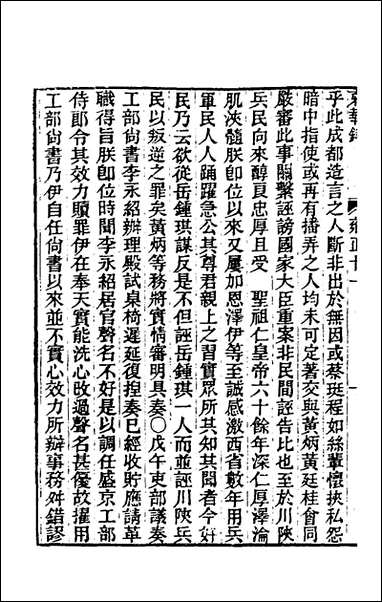 東華錄 雍正十一
乎此成都造言之人斷非出於無因或蔡珽程如絲輩懷挾私怨
暗中指使或再有播弄之人均未可定著交與黃炳黃廷桂會同
嚴審此事關繫誣謗國家大臣重案非民間誣告比也至於川陝
兵民向來醇良忠厚且受 聖祖仁皇帝六十餘年深仁厚澤淪
肌浹髓朕卽位以來又屢加恩澤伊等至誠感激西省數年用兵
軍民人人踴躍急公其尊君親上之習實眾所共知共聞者今好
民乃云欲從岳鍾琪謀反是不但誣岳鍾琪一人而並誣川陝兵
民以叛逆之罪矣黃炳等務將實情審明具奏○戊午吏部議奏
工部尚書李永紹辦理殿試桌椅遲延復捏奏已經收貯應請革
職得旨朕卽位時聞李永紹居官聲名不好是以調任盛京工部
侍郎令其效力贖罪伊在奉天實能洗心改過聲名甚優故擢用
工部尚書乃伊自任尚書以來並不實心效力所辦事務舛錯謬